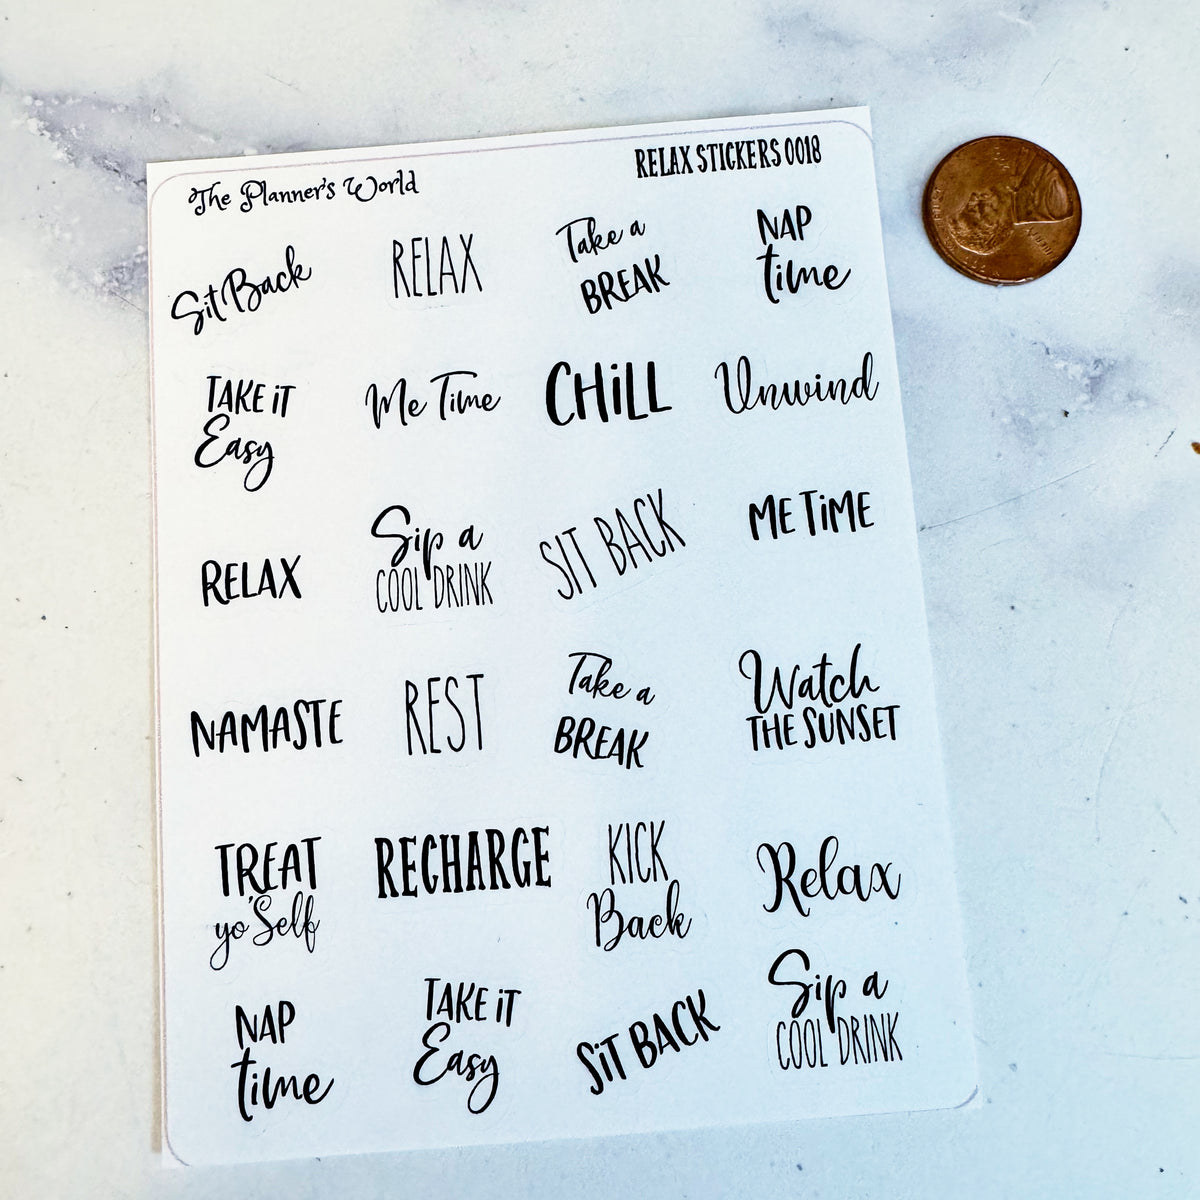 The Planner's World
RELAX STICKERS 0018
Sit Back
RELAX
Take a
BREAK
NAP
time
TAKE iT
Easy
Me Time
CHiLL
Unwind
RELAX
Sip a
COOL DRINK
SIT BACK
ME TiME
NAMASTE
REST
Take a
BREAK
Watch
THE SUNSET
TREAT
yo'Self
RECHARGE
KICK
Back
Relax
NAP
time
TAKE iT
Easy
SiT BACK
Sip a
COOL DRINK